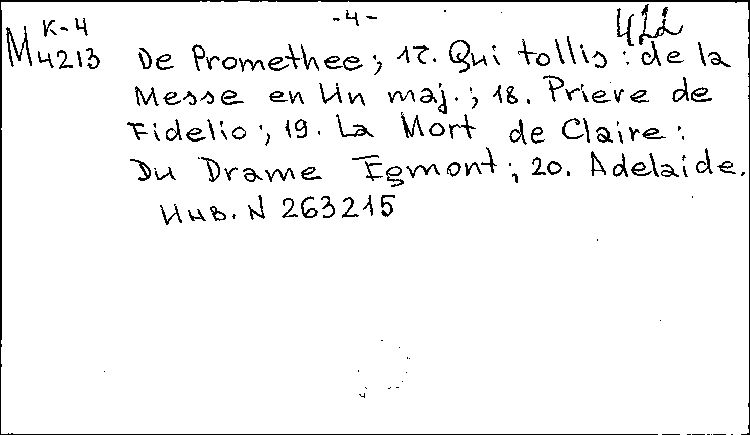 K-4
-4-
422
M4213 De Promethee; 17. Qui tollis: de la
Messe en Un maj.; 18. Priere de
Fidelio; 19. La Mort de Claire:
Du Drame Egmont; 20. Adelaide.
Инв. N 263215